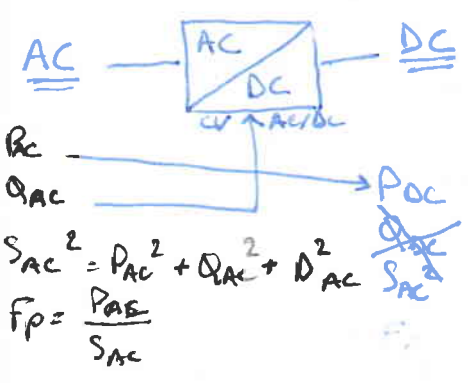 AC
AC
DC
DC
CV AC/DC
PAC
QAC
PDC
QDC
SAC²
SAC² = PAC² + QAC² + D²AC
Fp = PAC / SAC